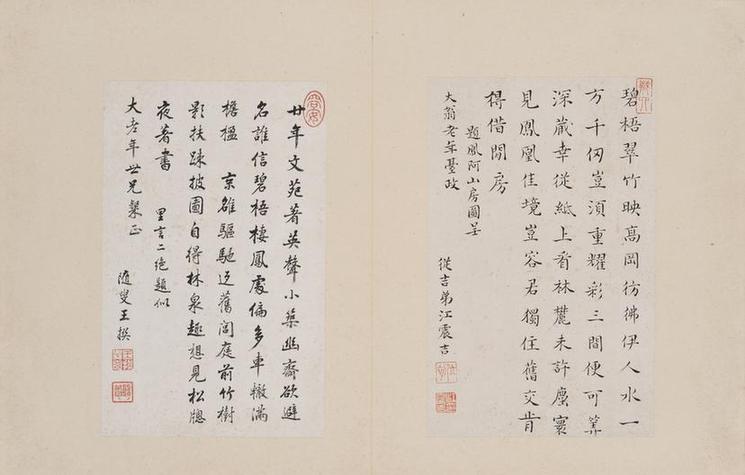 碧梧翠竹映高岡彷彿伊人水一
方千仞豈湏重耀彩三間便可葺
深蔵幸從紙上看林麓未許塵寰
見鳳凰佳境豈容君獨住舊交肯
得借閒房
題鳳阿山房圖呈
大翁老年臺政
從吉弟江震吉
廿年文苑著英聲小築幽齋欲避
名誰信碧梧棲鳳處偏多車轍滿
檐楹 京雒驅馳迟舊閭庭前竹樹
影扶疎披圖自得林泉趣想見松牕
夜著書 里言二絶題似
大老年世兄粲正
随叟王撰